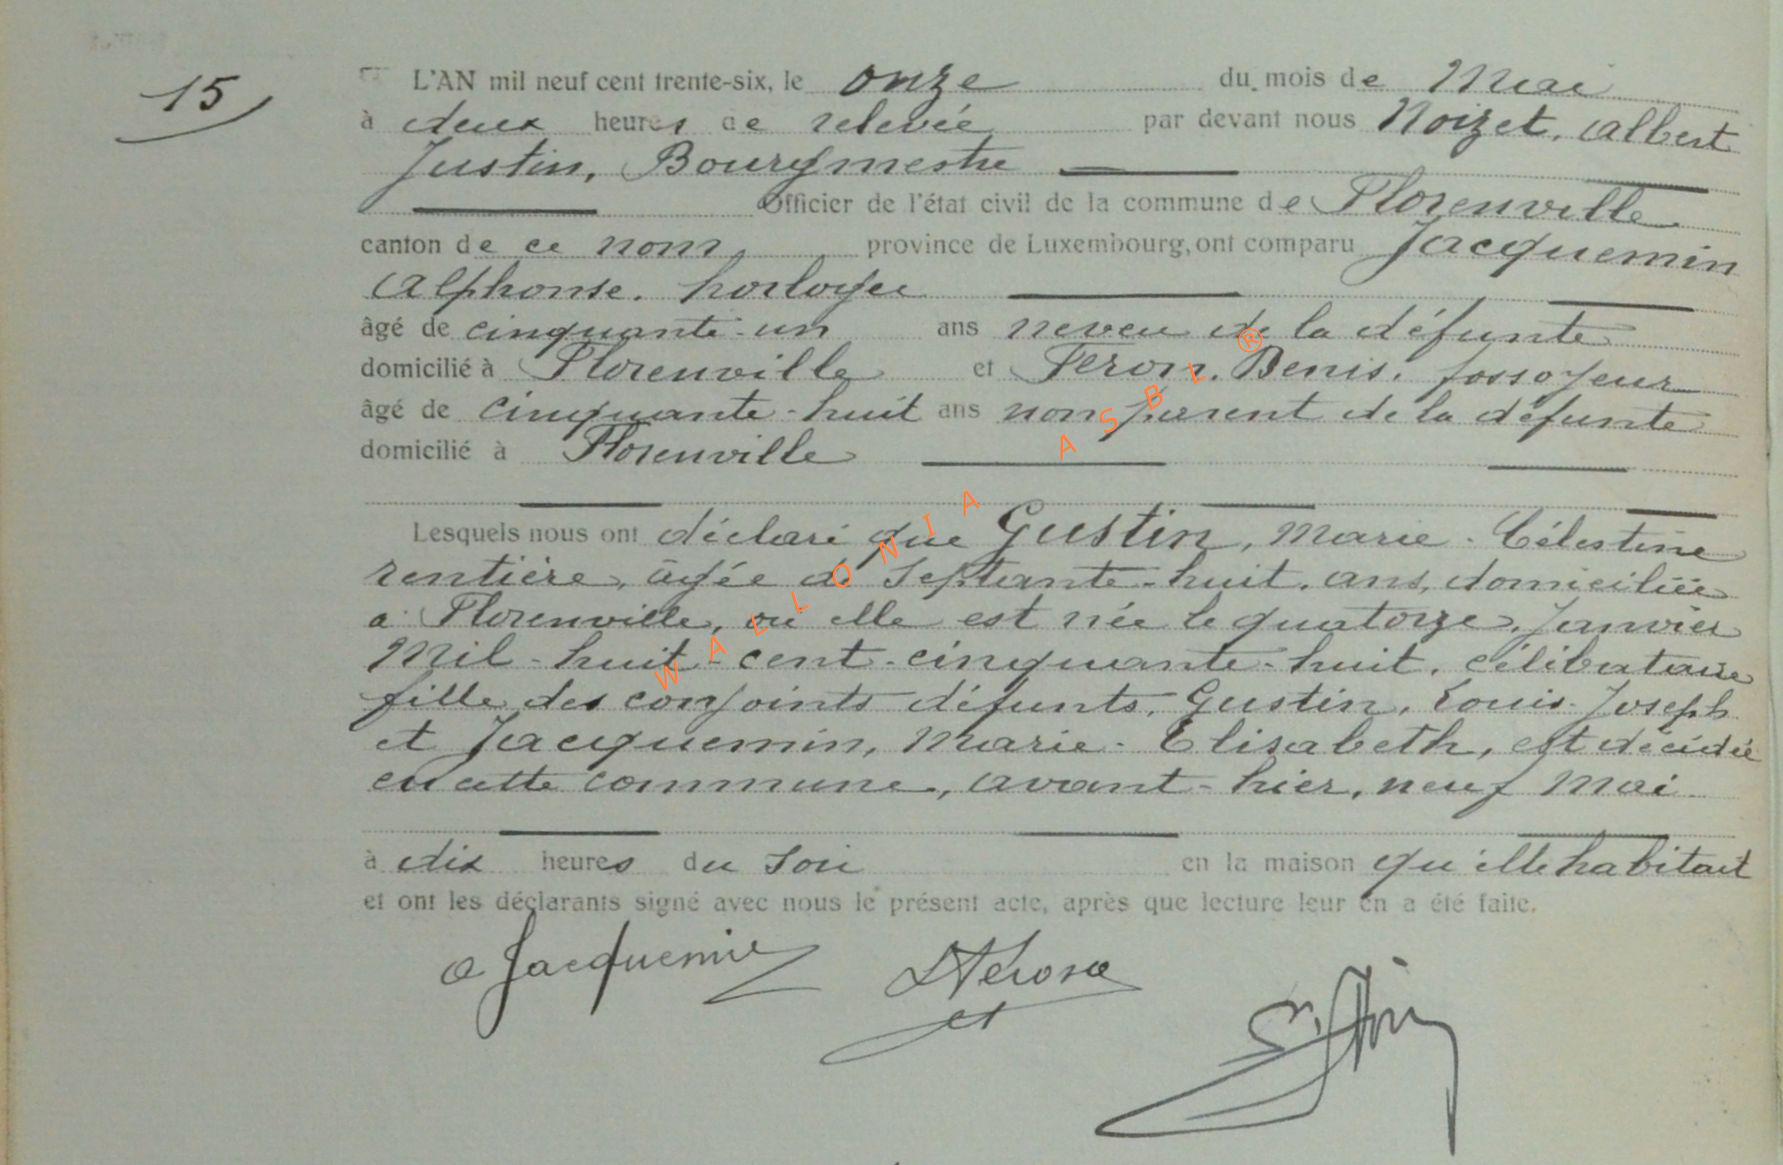 15
L'AN mil neuf cent trente-six, le onze du mois de Mai
à deux heures de relevée par devant nous Noizet, Albert
Justin, Bourgmestre
Officier de l'état civil de la commune de Florenville
canton de ce nom, province de Luxembourg, ont comparu Jacquemin
Alphonse, horloger
âgé de cinquante-un ans neveu de la défunte
domicilié à Florenville et Feron, Denis, fossoyeur
âgé de cinquante-huit ans non parent de la défunte
domicilié à Florenville
Lesquels nous ont déclaré que Gustin, Marie-Célestine
rentière, âgée de septante-huit ans, domiciliée
à Florenville, où elle est née le quatorze Janvier
Mil-huit-cent-cinquante-huit, célibataire
fille des conjoints défunts, Gustin, Louis-Joseph
et Jacquemin, Marie-Elisabeth, est décédée
en cette commune, avant-hier, neuf Mai
à dix heures du soir en la maison qu'elle habitait
et ont les déclarants signé avec nous le présent acte, après que lecture leur en a été faite.
a Jacquemin
WALLONIA ASBL ®